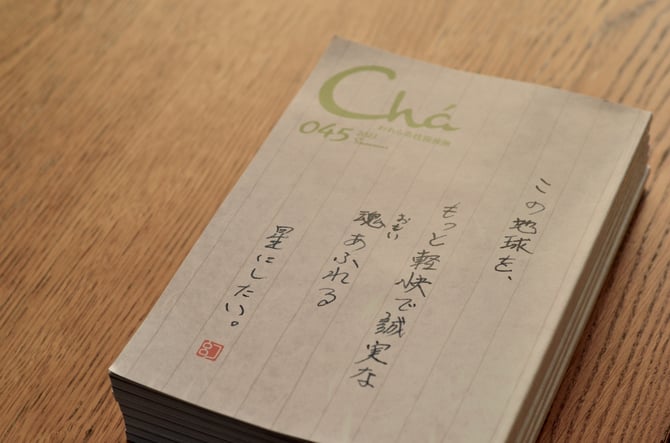 Chá
045
2021
Summer
この地球を、
もっと軽快で誠実な
おもい
魂あふれる
星にしたい。